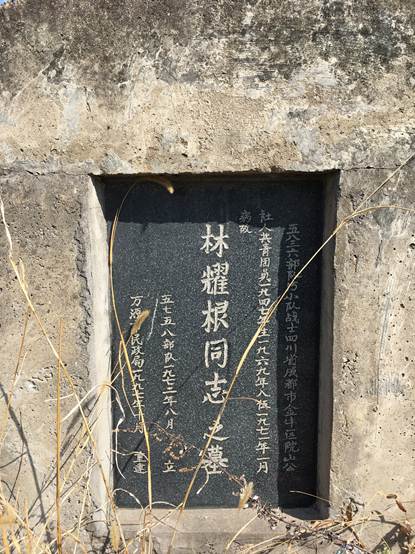 五八二六部队方小队战士四川省成都市金牛区院山公
社人共青团员一九四七年生一九六九年入伍一九七二年一月
病故
林耀根同志之墓
五七五八部队一九七二年八月 立
万源 民政局一九九七年 月 重建